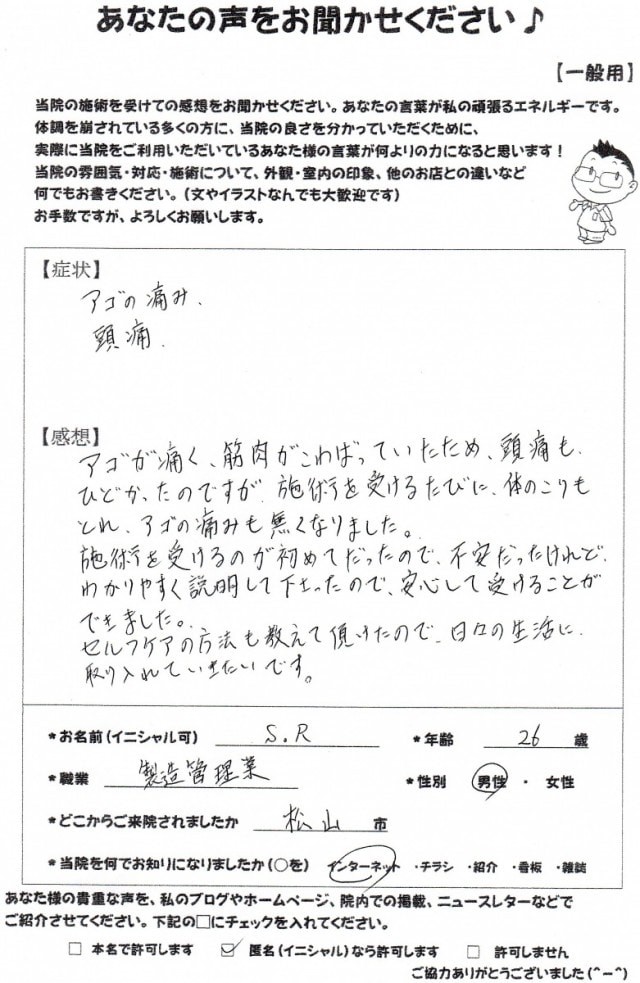 あなたの声をお聞かせください♪
【一般用】
当院の施術を受けての感想をお聞かせください。あなたの言葉が私の頑張るエネルギーです。
体調を崩されている多くの方に、当院の良さを分かっていただくために、
実際に当院をご利用いただいているあなた様の言葉が何よりの力になると思います!
当院の雰囲気・対応・施術について、外観・室内の印象、他のお店との違いなど
何でもお書きください。(文やイラストなんでも大歓迎です)
お手数ですが、よろしくお願いします。
【症状】
アゴの痛み.
頭痛.
【感想】
アゴが痛く、筋肉がこわばっていたため、頭痛も
ひどかったのですが 施術を受けるたびに、体のこりも
とれ、アゴの痛みも無くなりました。
施術を受けるのが初めてだったので、不安だったけれど、
わかりやすく説明して下さったので、安心して受けることが
できました。
セルフケアの方法も教えて頂けたので、日々の生活に
取り入れていきたいです。
*お名前(イニシャル可) S.R *年齢 26 歳
*職業 製造管理業 *性別 男性 ・ 女性
*どこからご来院されましたか 松山 市
*当院を何でお知りになりましたか(○を) インターネット ・チラシ ・紹介 ・看板 ・雑誌
あなた様の貴重な声を、私のブログやホームページ、院内での掲載、ニュースレターなどで
ご紹介させてください。下記の□にチェックを入れてください。
□ 本名で許可します ☑ 匿名(イニシャル)なら許可します □ 許可しません
ご協力ありがとうございました(^-^)